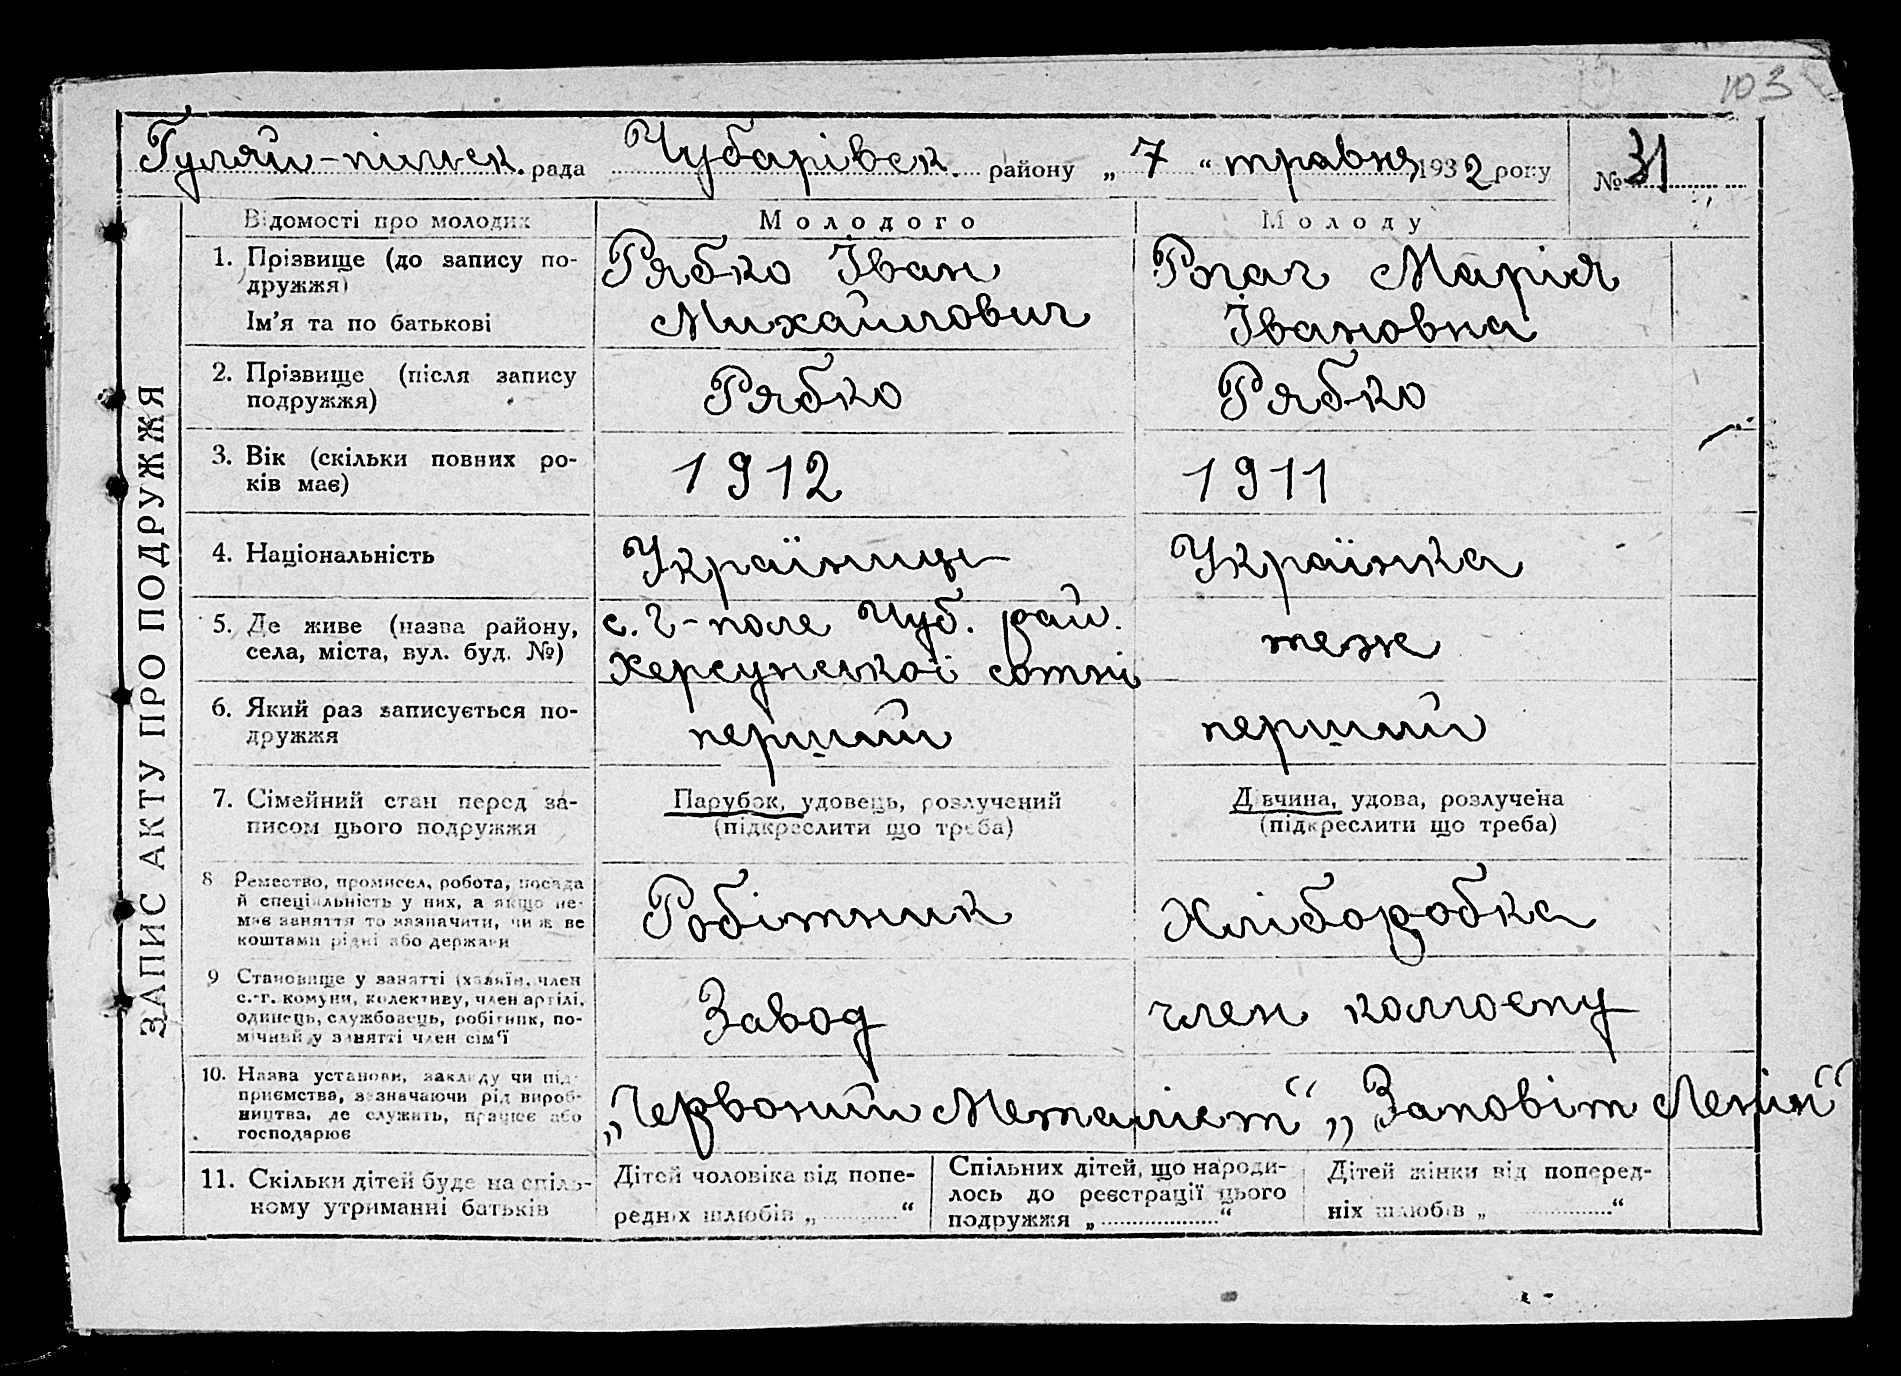 103
Гуляй-пільск. рада Чубарівск. району „ 7 “ травня 1932 року № 31
ЗАПИС АКТУ ПРО ПОДРУЖЖЯ
Відомості про молодих
Молодого
Молоду
1. Прізвище (до запису по-
дружжя)
Ім'я та по батькові
Рябко Іван
Михайлович
Рогач Марія
Івановна
2. Прізвище (після запису
подружжя)
Рябко
Рябко
3. Вік (скільки повних ро-
ків має)
1912
1911
4. Національність
Україниць
Українка
5. Де живе (назва району,
села, міста, вул. буд. №)
с. Г-поле Чуб. рай.
Херсунської сотні
теж
6. Який раз записується по-
дружжя
перший
перший
7. Сімейний стан перед за-
писом цього подружжя
Парубок, удовець, розлучений
(підкреслити що треба)
Дівчина, удова, розлучена
(підкреслити що треба)
8 Ремество, промисел, робота, посада
й спеціяльність у них, а якщо не-
має заняття то зазначити, чиж ве
коштами рідні або держави
Робітник
Хліборобка
9 Становище у занятті (хазяїн, член
с.-г. комуни, колективу, член артілі,
одинець, службовець, робітник, по-
мічний у занятті член сім'ї
Завод
член колгоспу
10. Назва установи, закладу чи під-
приємства, зазначаючи рід вироб-
ництва, де служить, працює або
господарює
„Червоний Металіст“
„Заповіт Леніна“
11. Скільки дітей буде на спіль-
ному утриманні батьків
Дітей чоловіка від попе-
редніх шлюбів „ “
Спільних дітей, що народи-
лось до реєстрації цього
подружжя „ “
Дітей жінки від поперед-
ніх шлюбів „ “